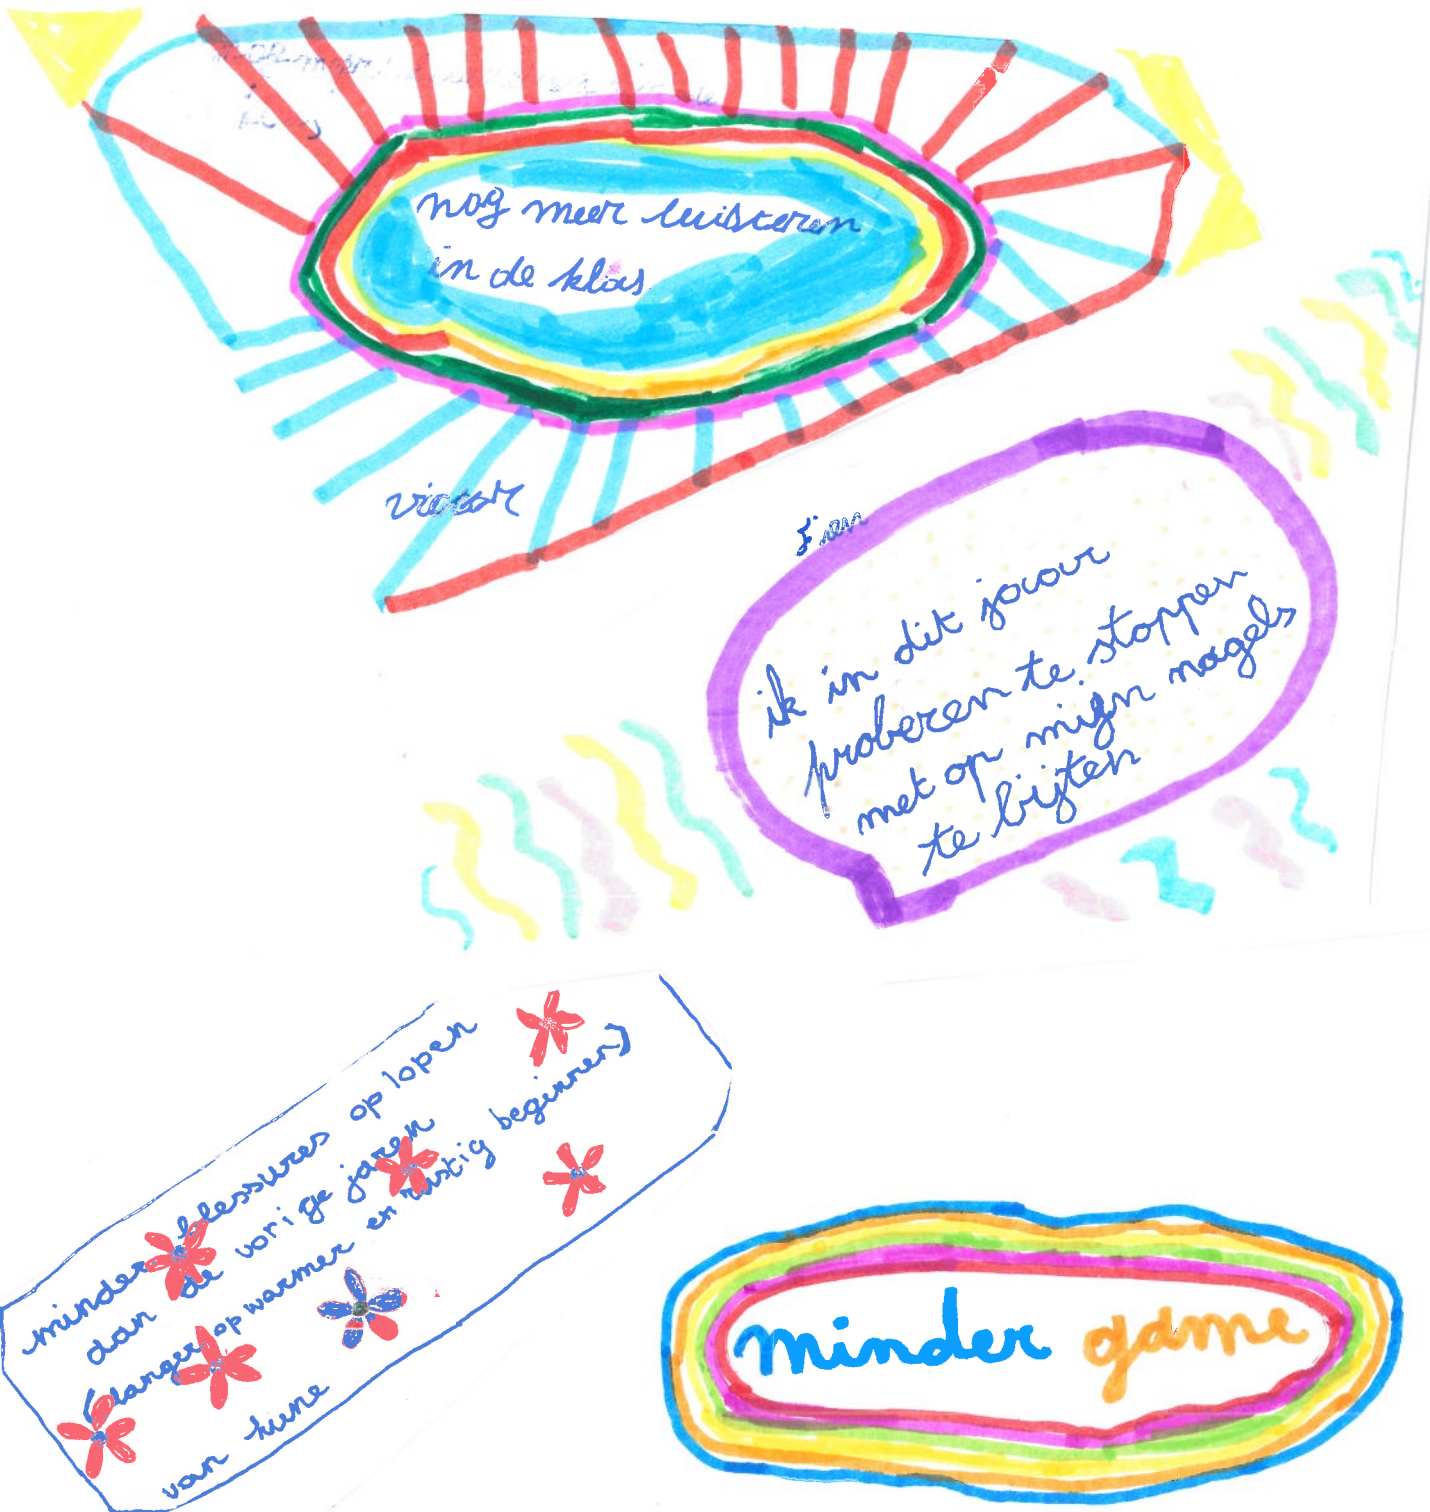 nog meer luisteren
in de klas
victor
Fien
ik in dit jaar
proberen te stoppen
met op mijn nagels
te bijten
minder blessures op lopen
dan de vorige jaren
(langer opwarmer en rustig beginnen)
van
minder game